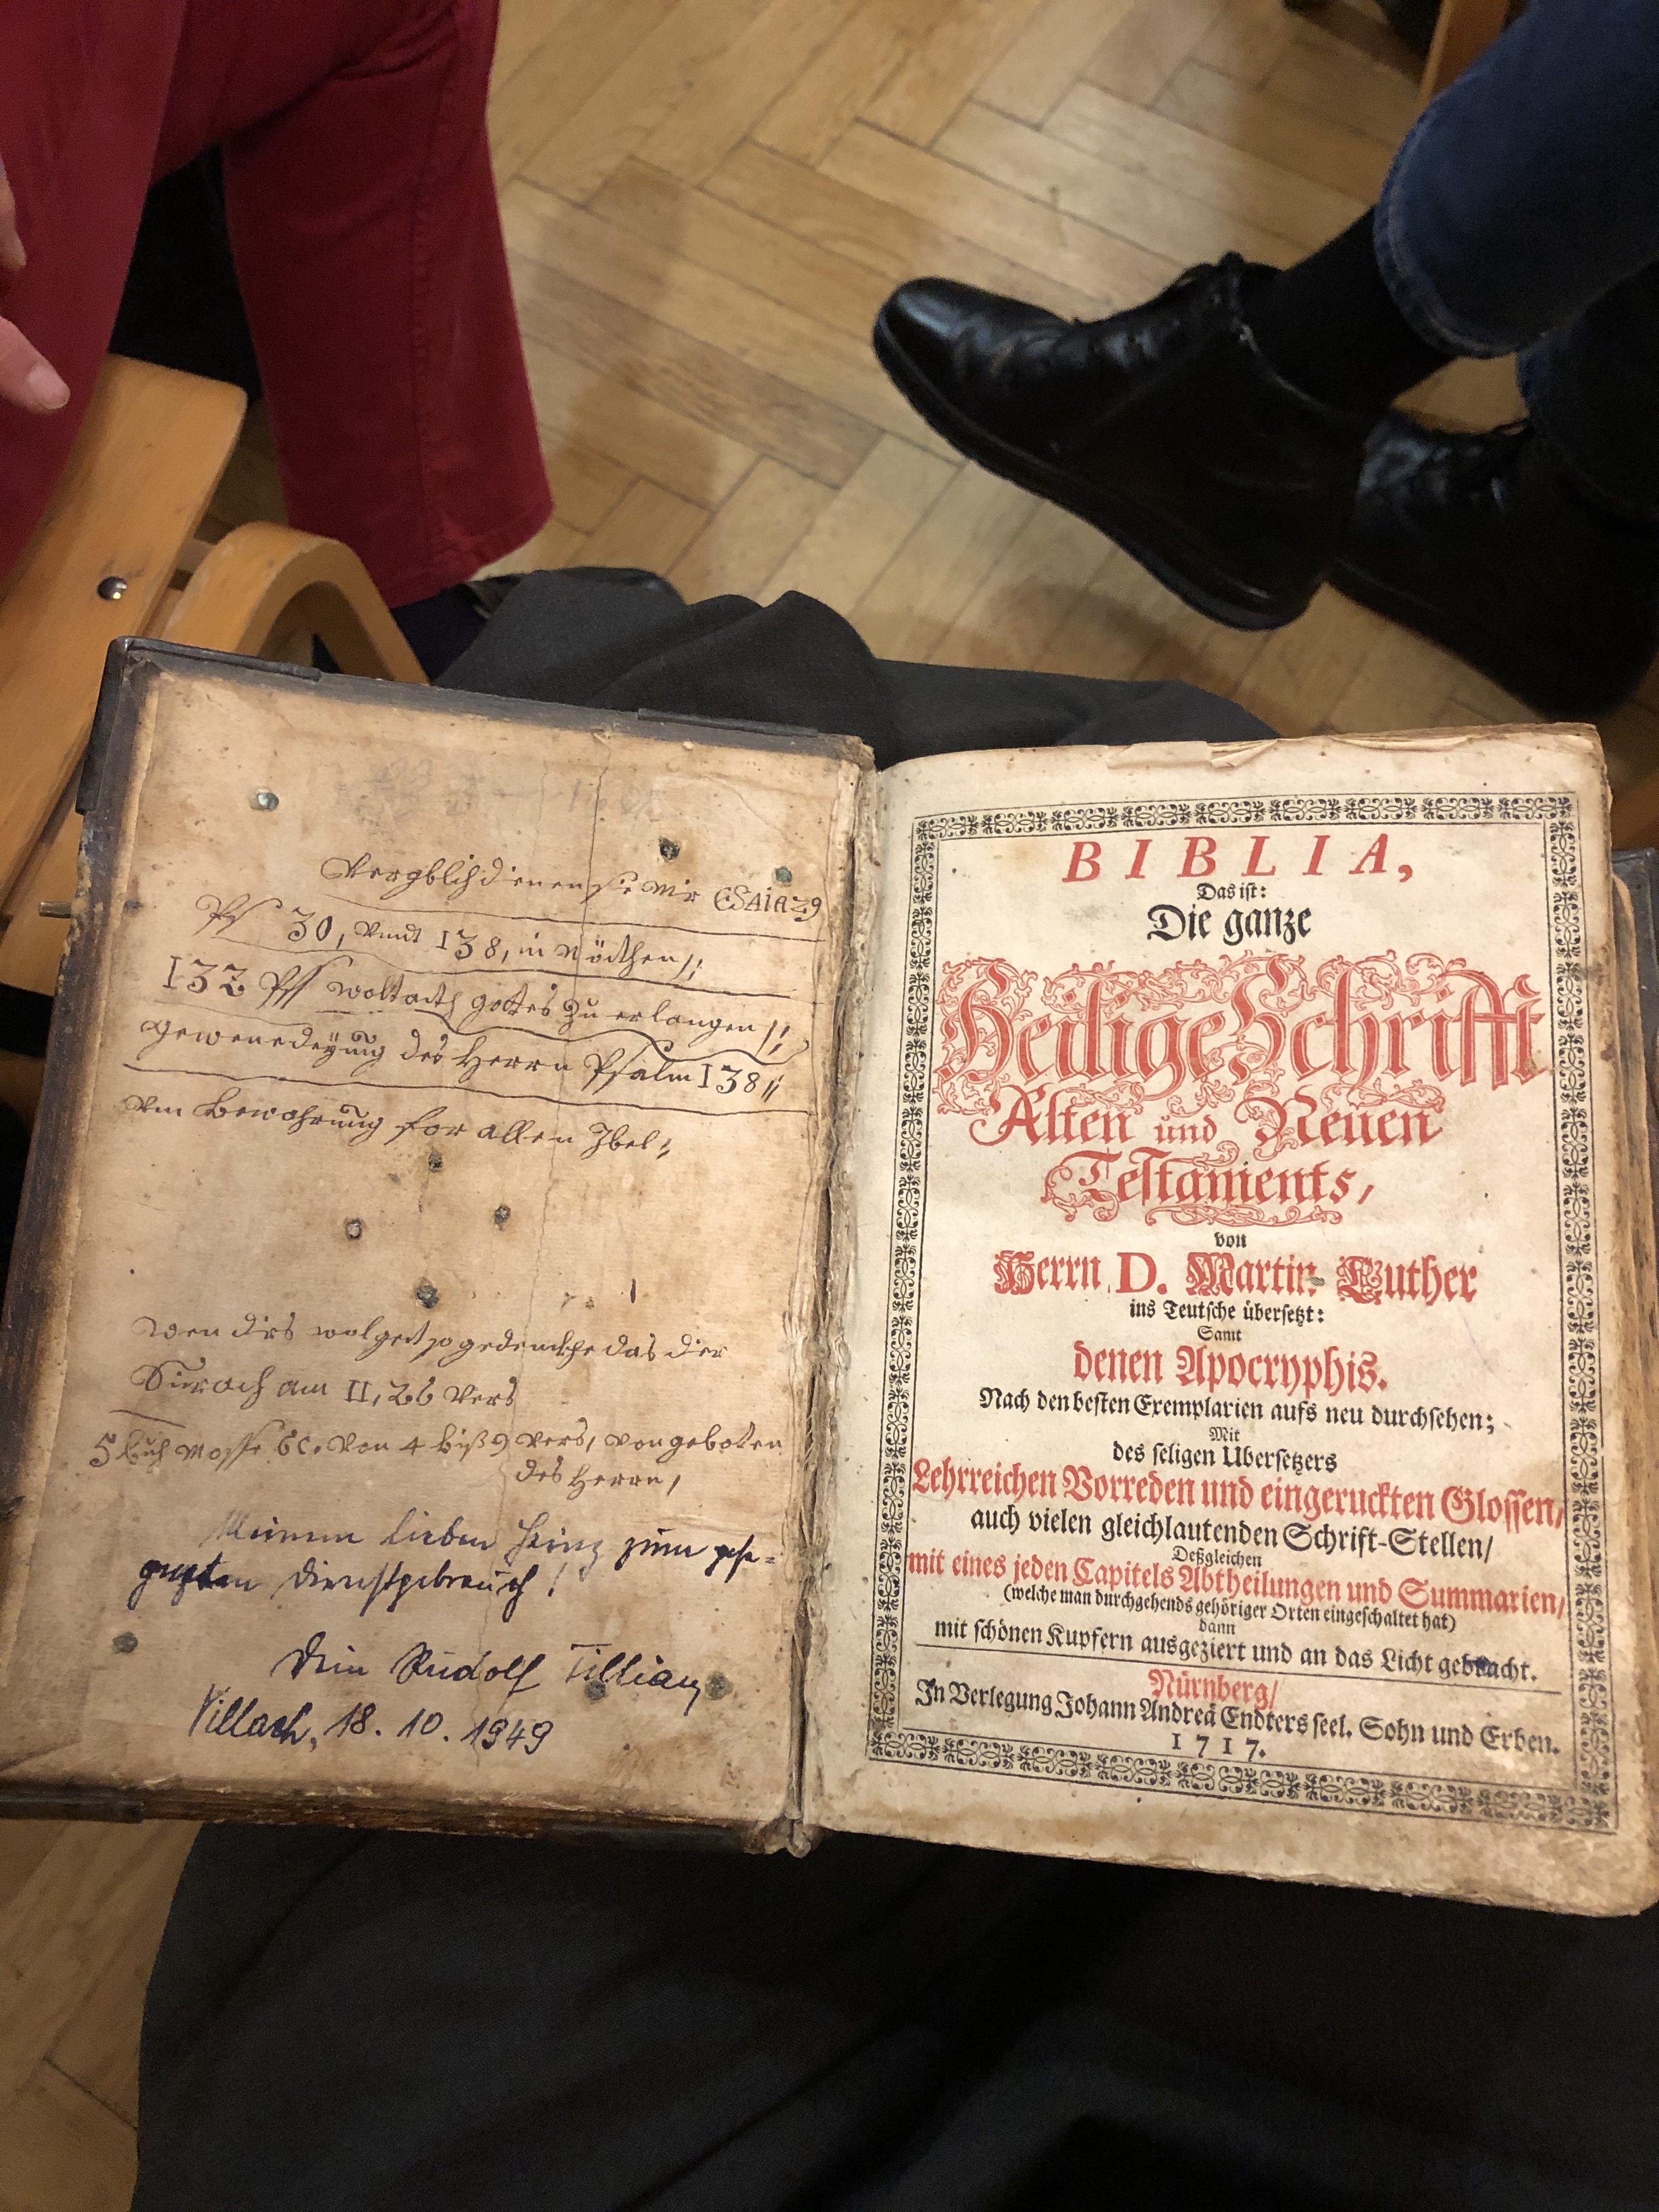 Vergblich dienen sie mir ESaia 29
Ps 30, vnndt 138, in Nöthen
132 Ps woltath gottes zu erlangen
des Herrn Psalm 138
vm bewahrung for allen Ibel
wen dirs wol get so gedenckhe das dir
Sirach am II, 26 vers
5 buch Mosse 6 C. von 4 biß 9 vers, von geboten
des Herrn,
Meinem lieben Heinz zum gese-
gneten Dienstgebrauch!
Dein Rudolf Tillian
Villach, 18. 10. 1949
BIBLIA,
Das ist:
Die ganze
Heilige Schrifft
Alten und Neuen
Testaments,
von
Herrn D. Martin Luther
ins Teutsche übersetzt:
Samt
denen Apocryphis.
Nach den besten Exemplarien aufs neu durchsehen;
Mit
des seligen Ubersetzers
Lehrreichen Vorreden und eingeruckten Glossen/
auch vielen gleichlautenden Schrift-Stellen/
Deßgleichen
mit eines jeden Capitels Abtheilungen und Summarien/
(welche man durchgehends gehöriger Orten eingeschaltet hat)
dann
mit schönen Kupfern ausgeziert und an das Licht gebracht.
Nürnberg/
In Verlegung Johann Andreä Endters seel. Sohn und Erben.
1717.